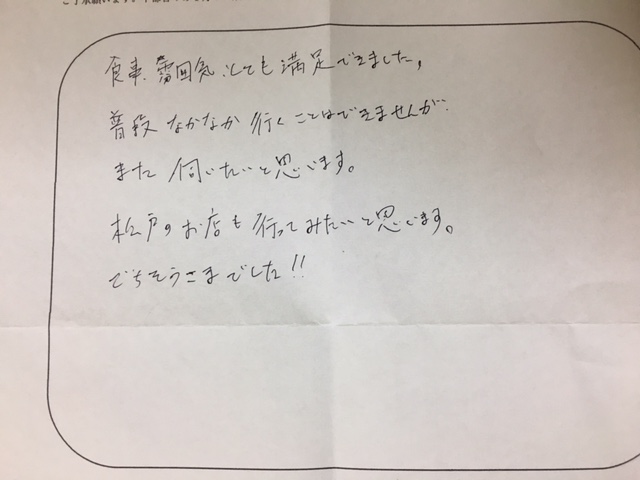 食事、雰囲気、とても満足できました。
普段 なかなか 行くことはできませんが
また 伺いたいと思います。
松戸のお店も行ってみたいと思います。
ごちそうさまでした!!